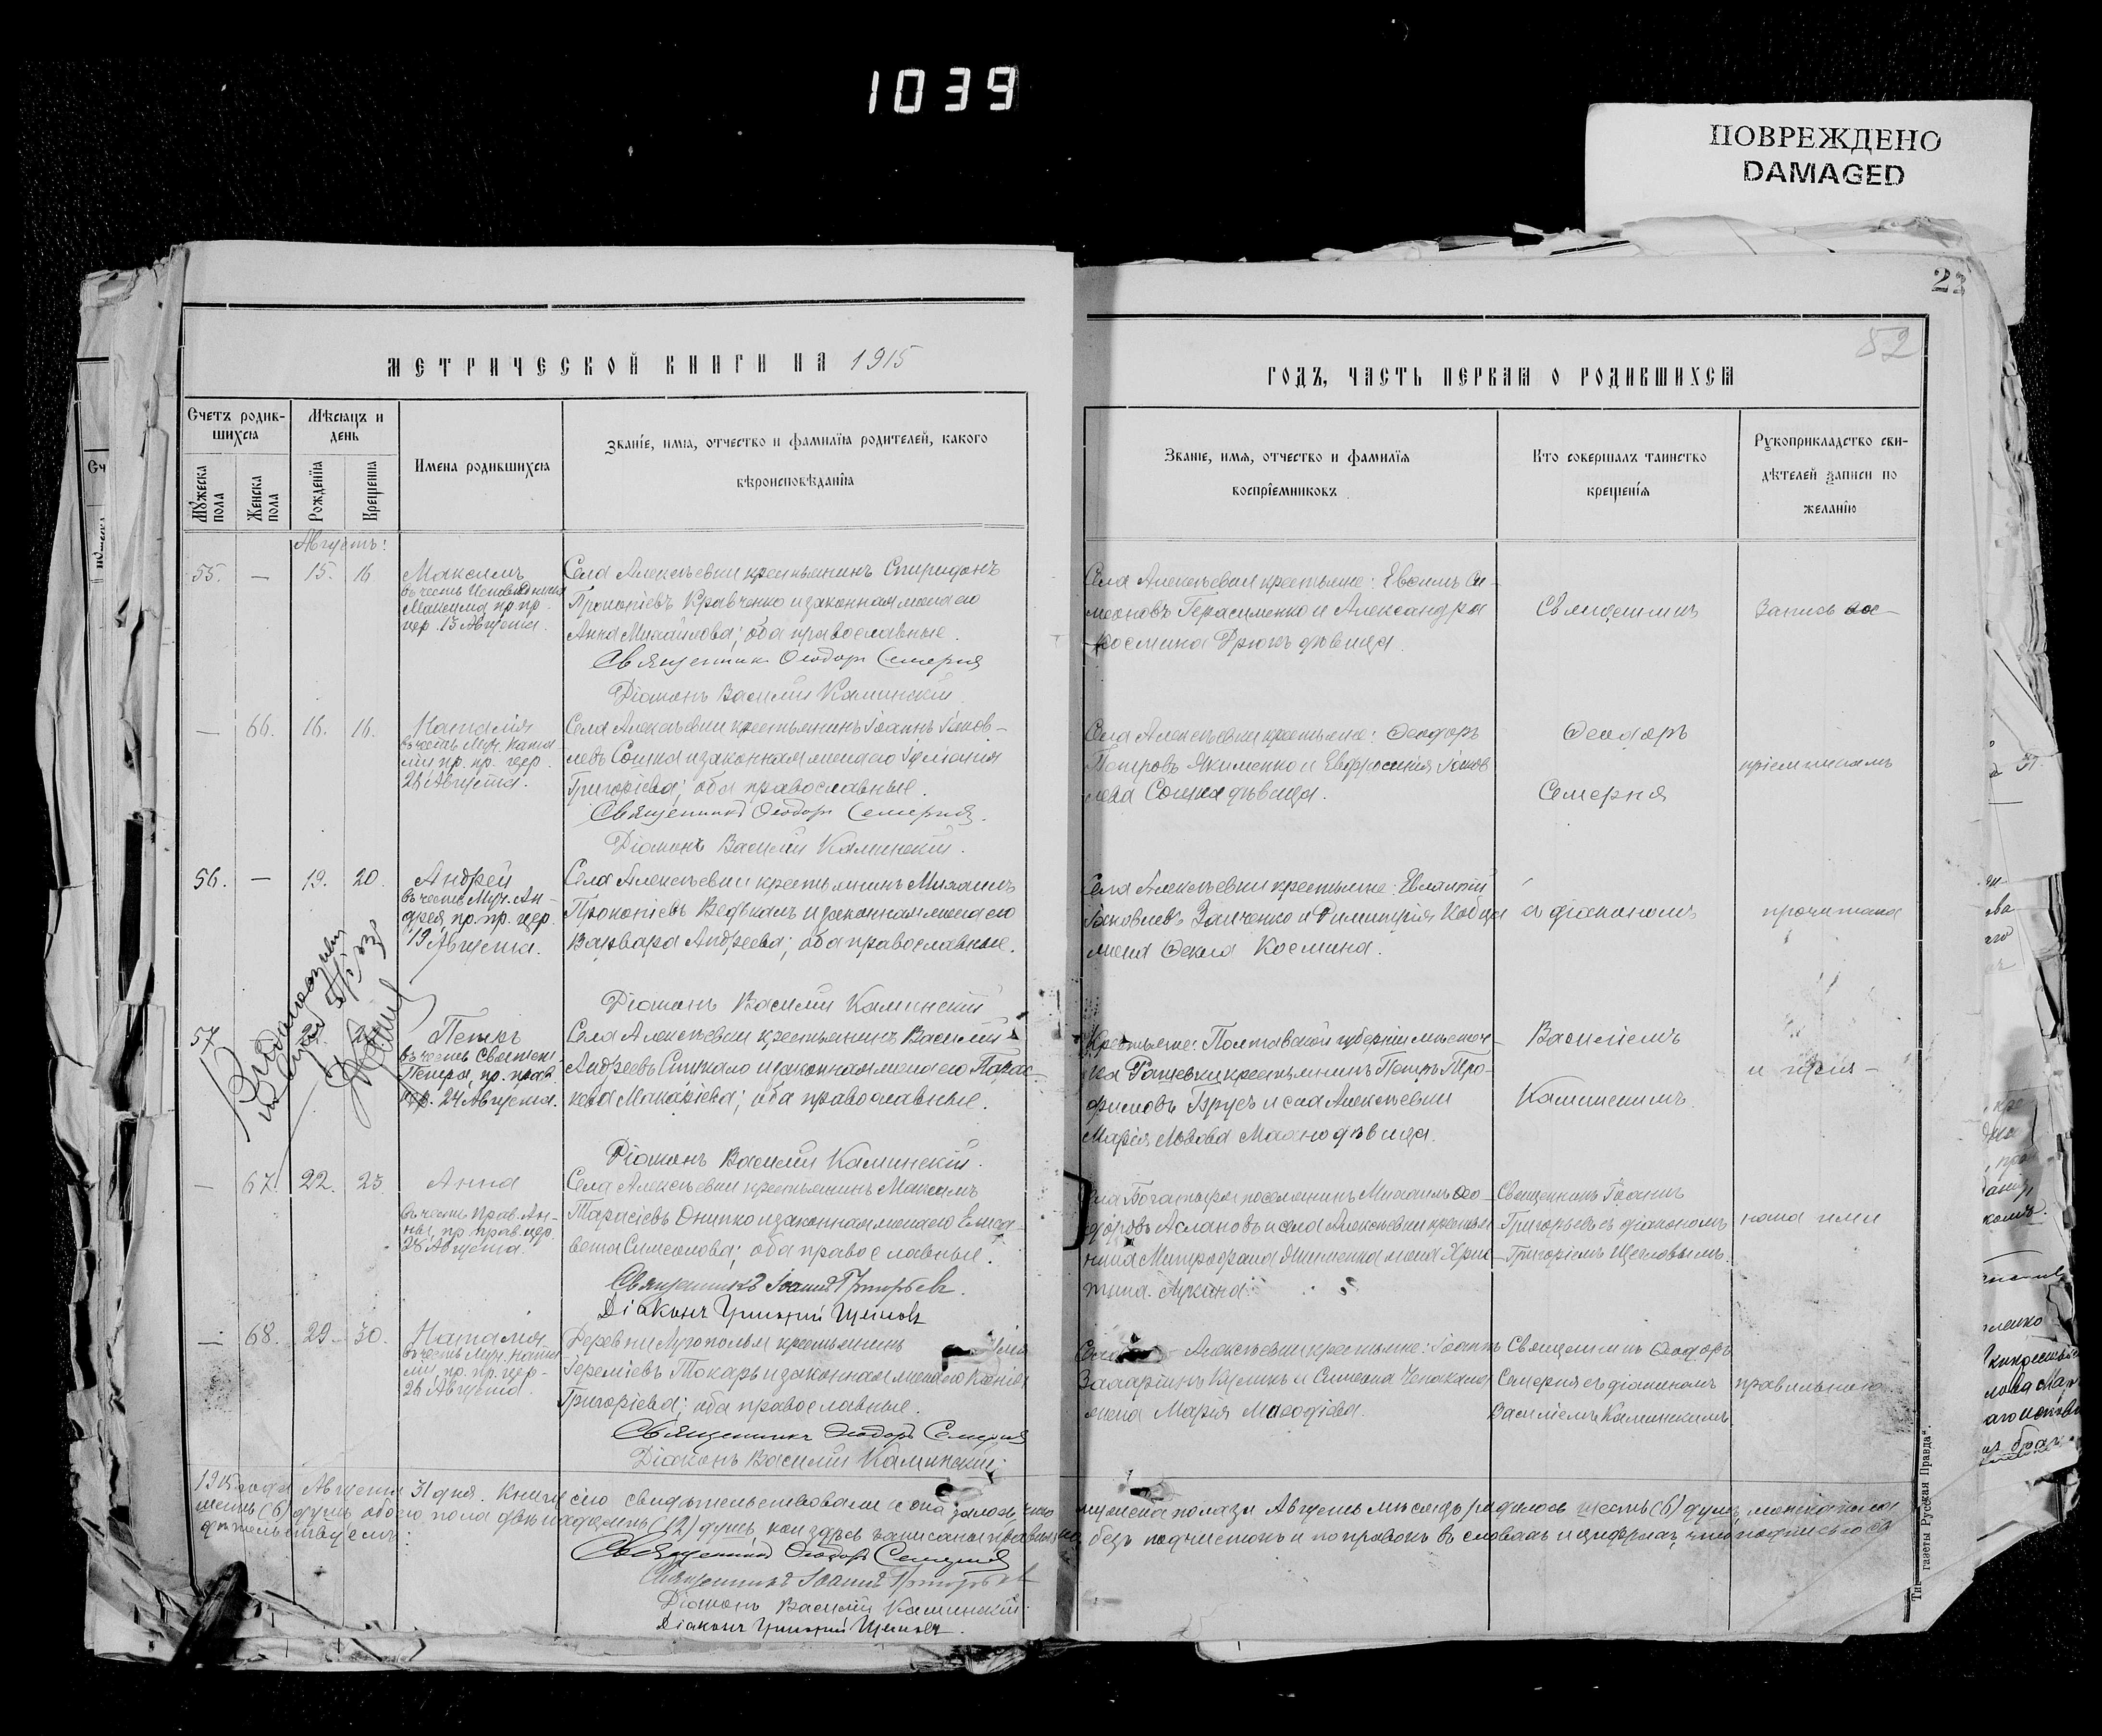 1039
ПОВРЕЖДЕНО
DAMAGED
23
52
МЕТРИЧЕСКОЙ КНИГИ НА 1915
ГОДЪ, ЧАСТЬ ПЕРВАЯ О РОДИВШИХСЯ
Счетъ родив-
шихся
Мѣсяцъ и
день
Мужеска
пола
Женска
пола
Рожденія
Крещенія
Имена родившихся
Званіе, имя, отчество и фамилія родителей, какого
вѣроисповѣданія
Званіе, имя, отчество и фамилія
воспріемниковъ
Кто совершалъ таинство
крещенія
Рукоприкладство сви-
дѣтелей записи по
желанію
Августъ:
55. — 15. 16
Максимъ
въ честь Исповѣдника
Максима пр. пр.
цер. 13 Августа.
Села Алексѣевки крестьянинъ Спиридонъ
Прокопіевъ Кравченко и законная жена его
Анна Михайлова; оба православные.
Священникъ Ѳеодоръ Семерня
Діаконъ Василій Каминскій.
Села Алексѣевки крестьяне: Евѳимъ Си-
меоновъ Герасименко и Александра
Космина Дрюкъ дѣвица.
Священникъ
Запись
— 66. 16. 16.
Наталія
въ честь Муч. Ната
ліи пр. пр. цер.
26 Августа.
Села Алексѣевки крестьянинъ Іоаннъ Іаков-
левъ Сошка и законная жена его Іуліанія
Григоріева; оба православные.
Священникъ Ѳеодоръ Семерня.
Діаконъ Василій Каминскій.
Села Алексѣевки крестьяне: Ѳеодоръ
Петровъ Якименко и Евфросинія Іаков
лева Сошка дѣвица.
Ѳеодоръ
Семерня
пріемникамъ
56. — 19. 20.
Андрей
въ честь Муч. Ан-
дрея, пр. пр. цер.
19 Августа.
Села Алексѣевки крестьянинъ Михаилъ
Прокопіевъ Ведькалъ и законная жена его
Варвара Андреева; оба православные.
Діаконъ Василій Каминскій
Села Алексѣевки крестьяне: Евлампій
Іаковлевъ Заиченко и Димитрія Кобца
жена Ѳекла Космина.
съ діакономъ
прочитана
57
Петръ
въ честь Священ
Петра, пр. прав.
цер. 24 Августа.
Села Алексѣевки крестьянинъ Василій
Андреевъ Стукало и законная жена его Парас-
кева Макаріева; оба православные.
Діаконъ Василій Каминскій.
Крестьяне: Полтавской губерніи мѣстеч-
ка Рашевки крестьянинъ Петръ Тро-
фимовъ Брусъ и села Алексѣевки
Марія Львова Махно дѣвица.
Василіемъ
Каминскимъ.
— 67. 22. 23
Анна
въ честь Прав. Ан-
ны, пр. прав. цер.
28 Августа.
Села Алексѣевки крестьянинъ Максимъ
Тарасіевъ Онипко и законная жена его Елиса-
вета Симеонова; оба православные.
Священникъ Іоаннъ Григорьевъ.
Діаконъ Григорій Щегловъ
Села Богатыря поселянинъ Михаилъ Ѳео-
доровъ Аслановъ и села Алексѣевки крестья
нина Митрофана Якименка жена Хрис-
тина Лукина.
Священникъ Іоаннъ
Григорьевъ съ діакономъ
Григоріемъ Щегловымъ.
нами
— 68. 29. 30.
Наталія
въ честь Муч. Ната
ліи, пр. пр. цер.
26 Августа.
Деревни Лугополья крестьянинъ
Іереміевъ Токарь и законная жена его Ксенія
Григоріева; оба православные.
Священникъ Ѳеодоръ Семерня
Діаконъ Василій Каминскій.
Алексѣевки крестьяне: Іоаннъ
Захаріинъ Куликъ и Симеона Чепакина
жена Марія Меѳодіева.
Священникъ Ѳеодоръ
Семерня съ діакономъ
Василіемъ Каминскимъ
правильною
1915 года Августа 31 дня. Книгу сію свидѣтельствовали и оказалось, что женска пола за Августъ мѣсяцъ родилось шесть (6) душъ, мужска пола
шесть (6) душъ, обоего пола двѣнадцать (12) душъ, кои здѣсь записаны правильно, безъ подчистокъ и поправокъ въ словахъ и цифрахъ, что подписью сви
дѣтельствуемъ:
Священникъ Ѳеодоръ Семерня
Священникъ Іоаннъ Григорьевъ
Діаконъ Василій Каминскій.
Діаконъ Григорій Щегловъ.
газеты Русская Правда".